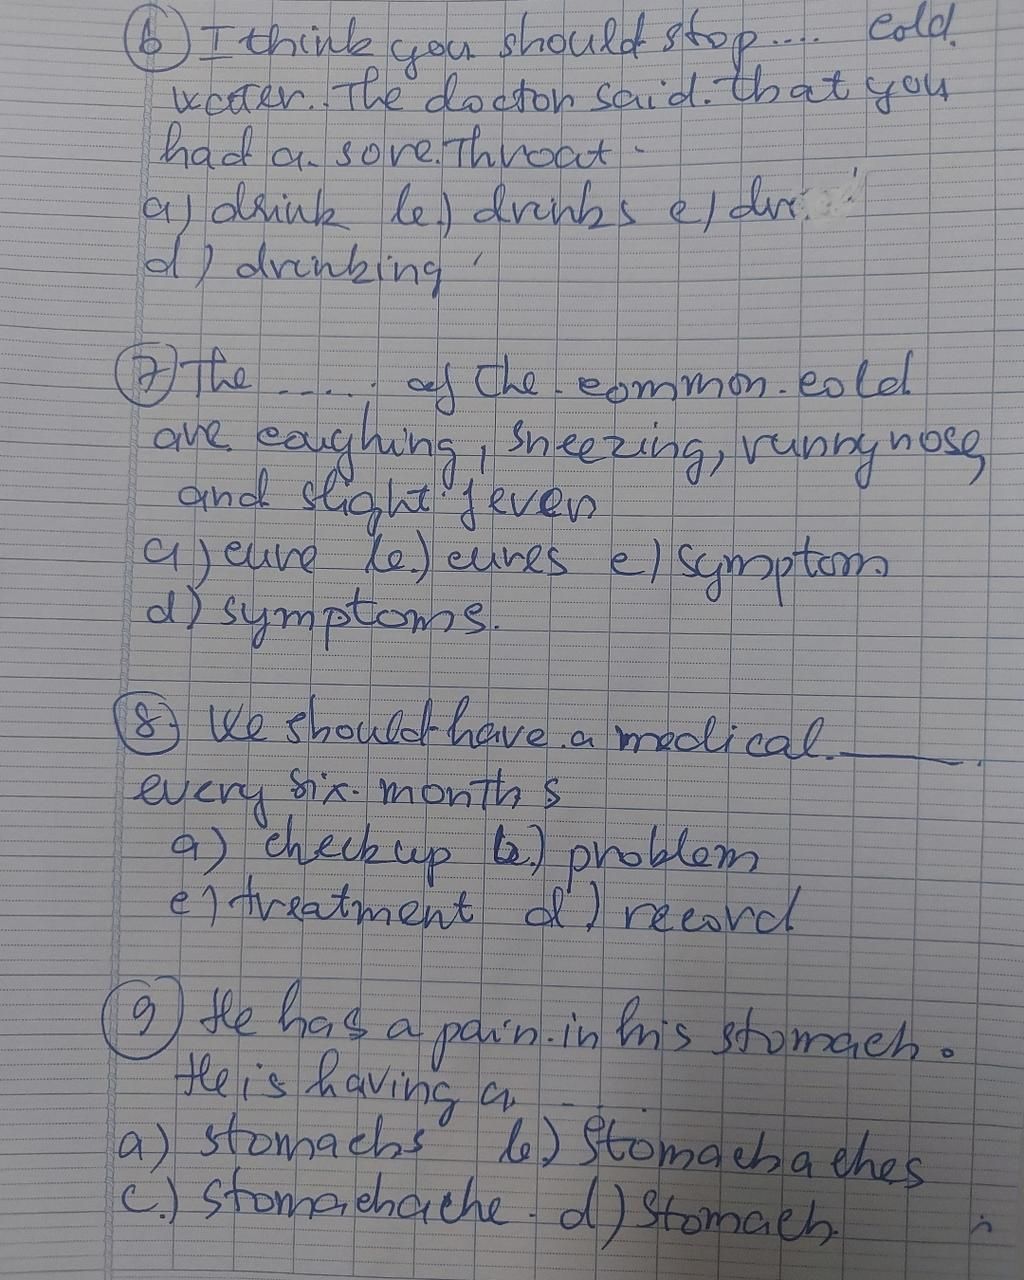 6) I think you should stop.... cold
water. The doctor said that you
had a sore throat.
a) drink b.) drinks c)
d) drinking
7) The ..... of the common cold
are coughing, sneezing, runny nose
and slight fever
a) cure b.) cures c) symptom
d) symptoms.
8) We should have a medical _____.
every six months
a) check up b.) problem
c) treatment d) record
9) He has a pain in his stomach.
He is having a ....
a) stomachs b) Stomachaches
c.) stomachache. d) Stomach